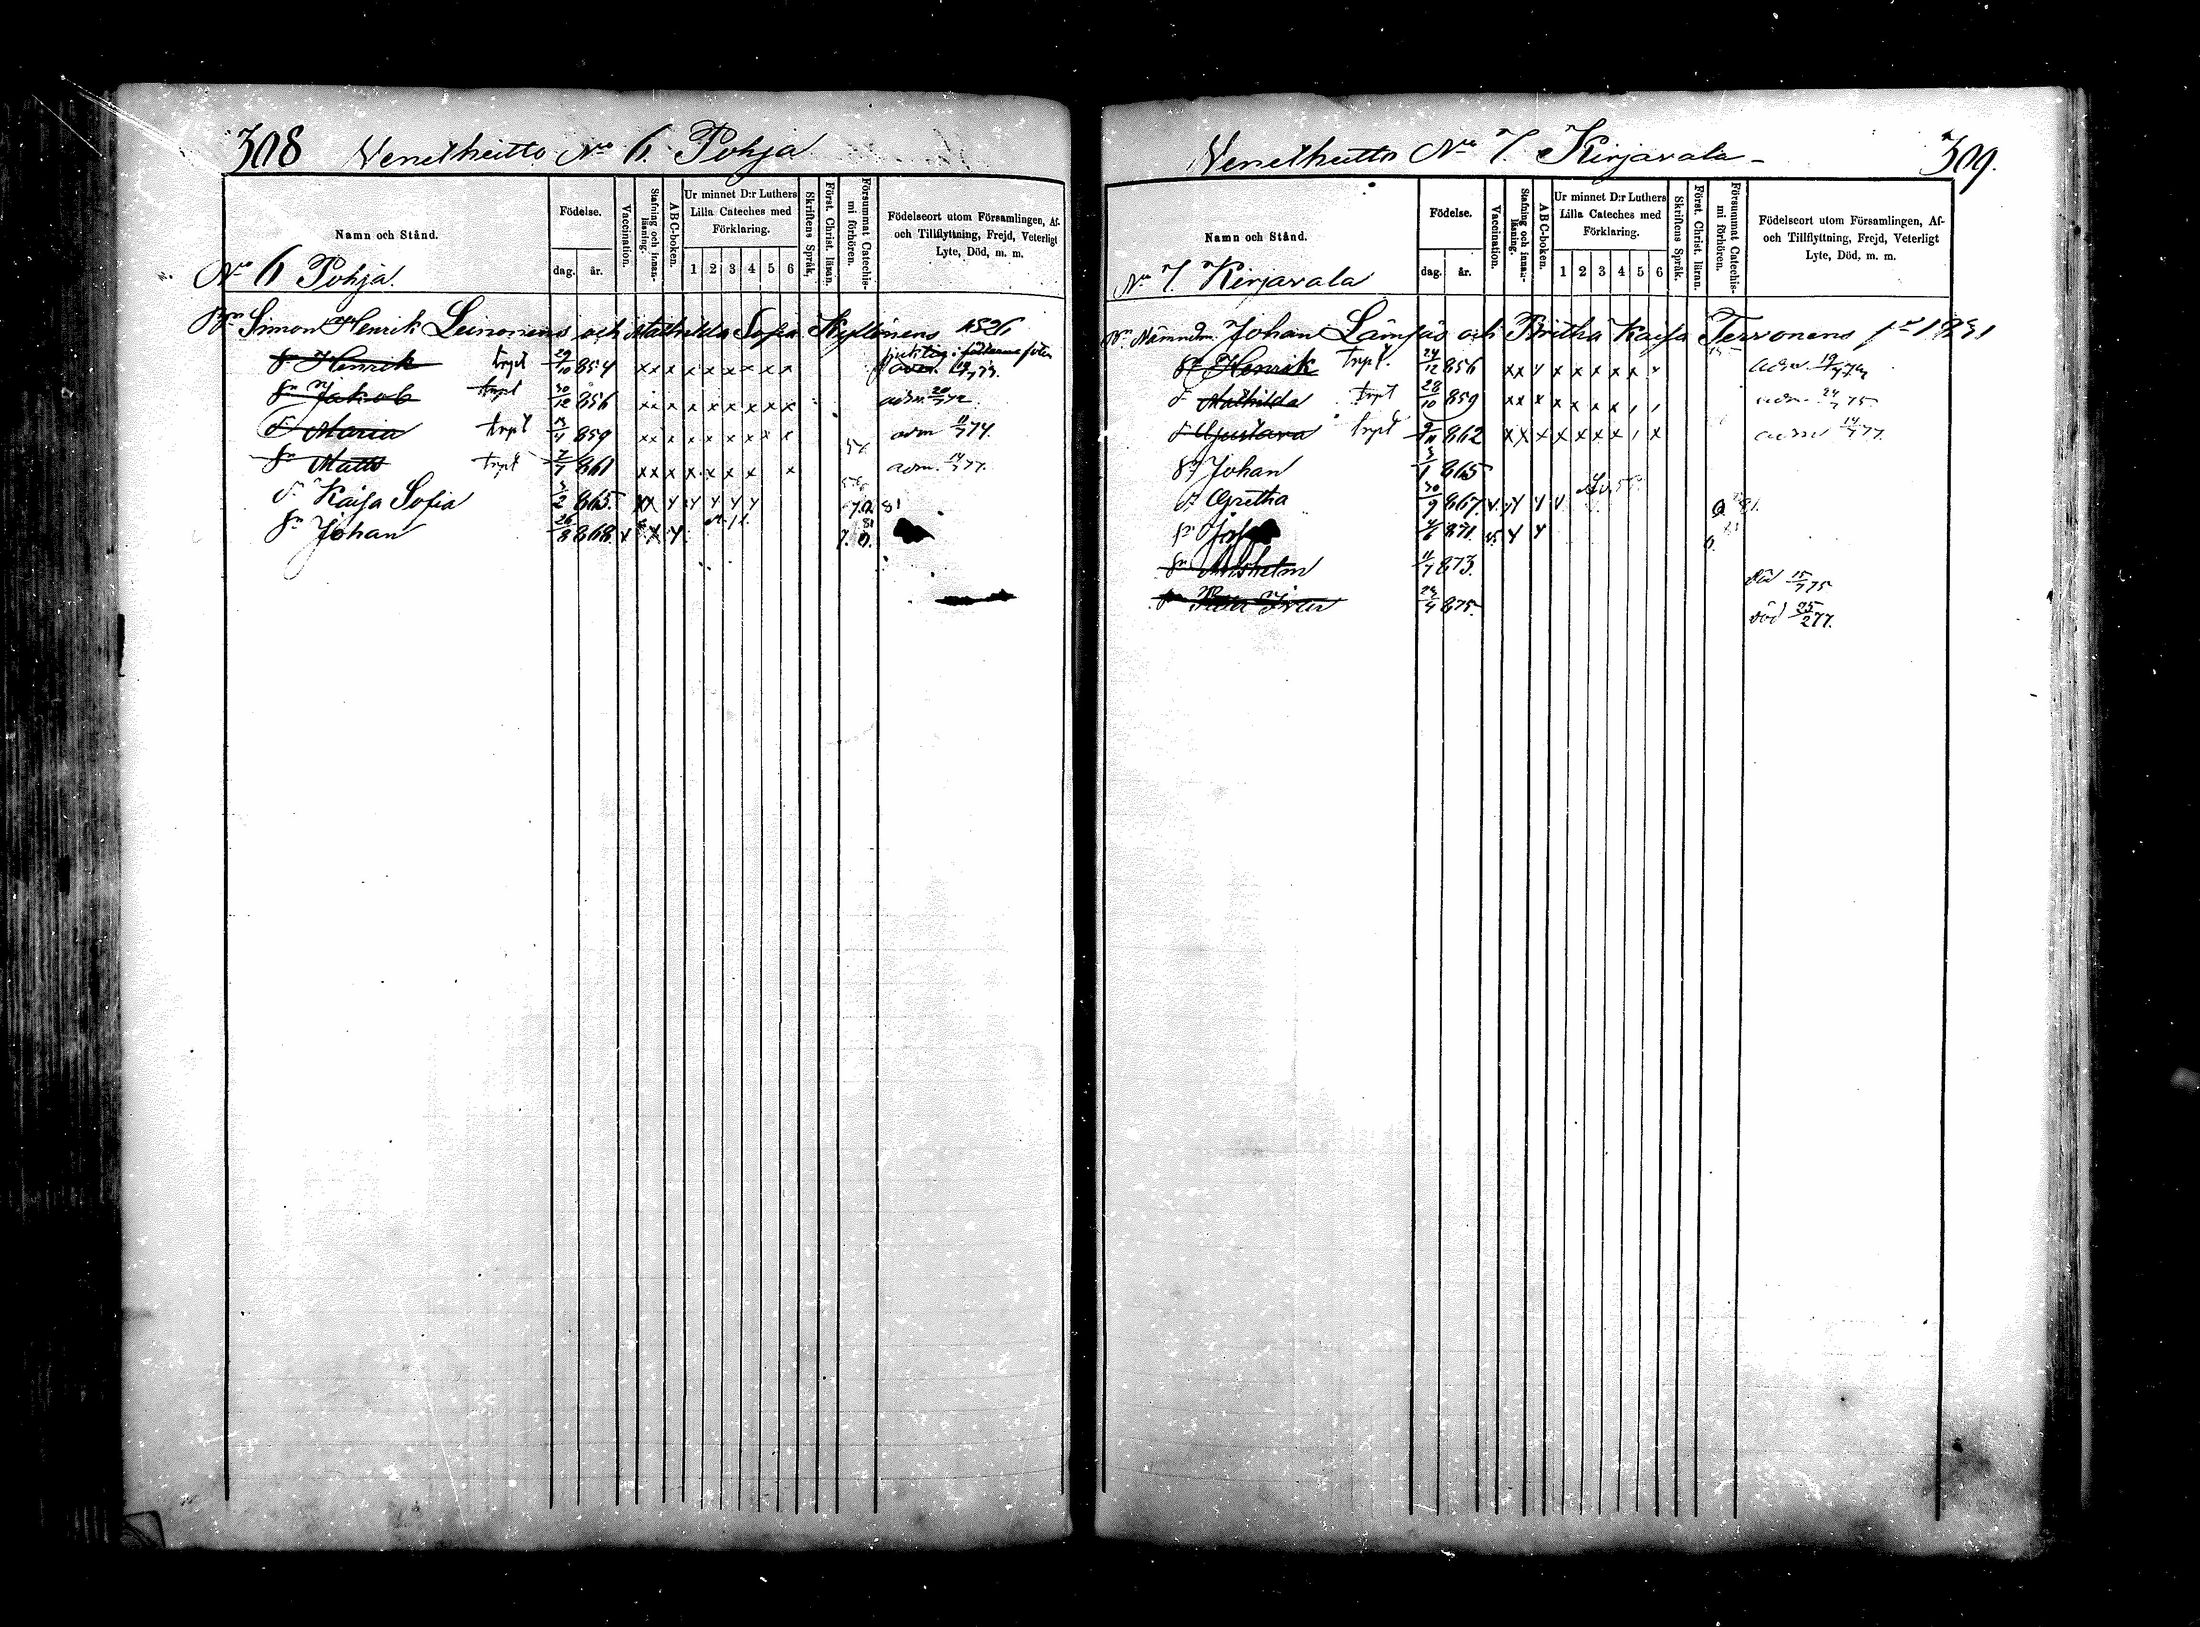 308 Venetheitto No 6. Pohja
Namn och Stånd.
Födelse.
dag. år.
Vaccination.
Stafning och innan-läsning.
ABC-boken.
Ur minnet D:r Luthers Lilla Cateches med Förklaring.
1 2 3 4 5 6
Skriftens Språk.
Först. Christ. läran.
Försummat Catechis-mi förhören.
Födelseort utom Församlingen, Af- och Tillflyttning, Frejd, Veterligt Lyte, Död, m. m.
No 6 Pohja.
Simon Henrik Leinonens och Mathilda Sofia Kyllönens 1526
sn Henrik trpt 29/10 854 x x x x x x x x x
sn Jakob trpt 30/12 856 x x x x x x x x x adm. 20/7 72.
d. Maria trpt 859 x x x x x x x x x adm 11/7 74.
sn Matts trpt 861 x x x x x x x x adm. 14/7 77.
d. Kaisa Sofia 865.
sn Johan 26/8 868.
Venetheitto No 7. Kirjavala 309.
Namn och Stånd.
Födelse.
dag. år.
Vaccination.
Stafning och innan-läsning.
ABC-boken.
Ur minnet D:r Luthers Lilla Cateches med Förklaring.
1 2 3 4 5 6
Skriftens Språk.
Först. Christ. läran.
Försummat Catechis-mi förhören.
Födelseort utom Församlingen, Af- och Tillflyttning, Frejd, Veterligt Lyte, Död, m. m.
No 7. Kirjavala
Nämndm. Johan Lämsäs och Britha Kaisa Tervonens
sn Henrik trpt. 24/12 856
d. Mathilda trpt 28/10 859
d. Gustava trpt 862 adm 14/7 77.
sn Johan 3/1 865
d. Gretha 30/9 867
871.
sn 11/7 873. död 15/7 75
sn 875. död 25/2 77.